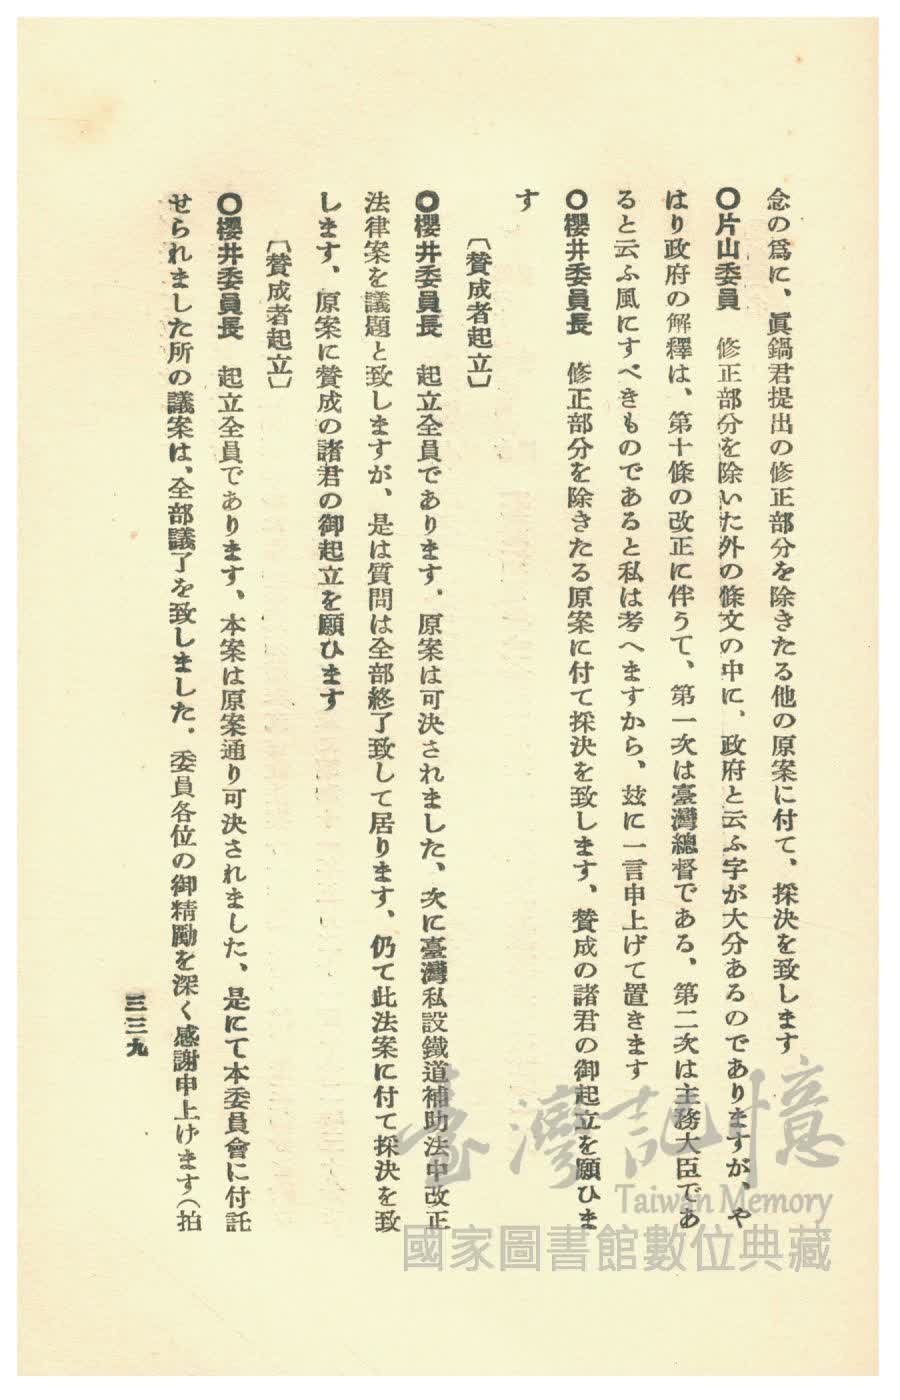 念の爲に、眞鍋君提出の修正部分を除きたる他の原案に付て、採決を致します
〇片山委員　修正部分を除いた外の條文の中に、政府と云ふ字が大分あるのでありますが、や
はり政府の解釋は、第十條の改正に伴うて、第一次は臺灣總督である、第二次は主務大臣であ
ると云ふ風にすべきものであると私は考へますから、玆に一言申上げて置きます
〇櫻井委員長　修正部分を除きたる原案に付て採決を致します、贊成の諸君の御起立を願ひま
す
〔贊成者起立〕
〇櫻井委員長　起立全員であります、原案は可決されました、次に臺灣私設鐵道補助法中改正
法律案を議題と致しますが、是は質問は全部終了致して居ります、仍て此法案に付て採決を致
します、原案に贊成の諸君の御起立を願ひます
〔贊成者起立〕
〇櫻井委員長　起立全員であります、本案は原案通り可決されました、是にて本委員會に付託
せられました所の議案は、全部議了を致しました、委員各位の御精勵を深く感謝申上げます（拍
三三九
臺灣記憶
Taiwan Memory
國家圖書館數位典藏